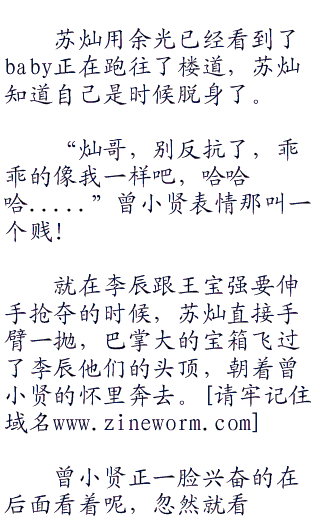 苏灿用余光已经看到了
baby正在跑往了楼道，苏灿
知道自己是时候脱身了。
“灿哥，别反抗了，乖
乖的像我一样吧，哈哈
哈.....”曾小贤表情那叫一
个贱!
就在李辰跟王宝强要伸
手抢夺的时候，苏灿直接手
臂一抛，巴掌大的宝箱飞过
了李辰他们的头顶，朝着曾
小贤的怀里奔去。[请牢记住
域名www.zineworm.com]
曾小贤正一脸兴奋的在
后面看着呢，忽然就看